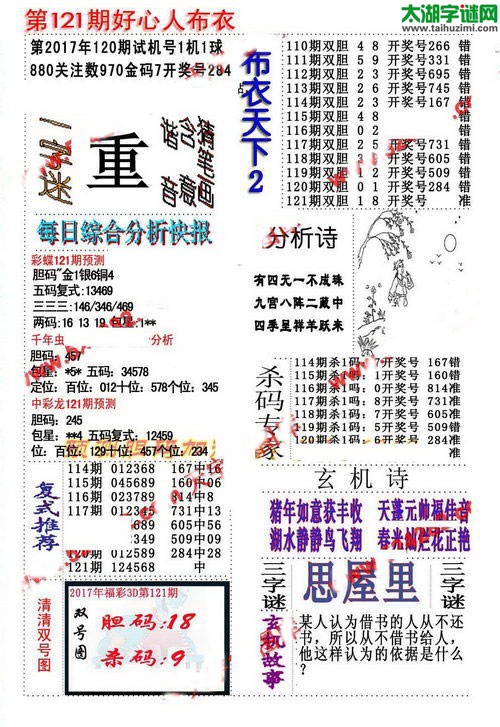 第121期好心人布衣
太湖字谜网
www.taihuzimi.com
第2017年120期试机号1机1球
880关注数970金码7开奖号284
一字迷
重
猪年画
含意
猪音
布衣天下2
110期双胆 4 8 开奖号266 错
111期双胆 5 9 开奖号331 错
112期双胆 2 3 开奖号695 错
114期双胆 2 3 开奖号167 错
115期双胆 4 8
116期双胆 0 2 错
117期双胆 2 5 开奖号731 错
118期双胆 开奖号605 错
119期双胆 1 2 开奖号509 错
120期双胆 0 1 开奖号284 错
121期双胆 1 8 开奖号 准
每日综合分析快报
彩蝶121期预测
胆码"金1银6铜4
五码复式:13469
三三三:146/346/469
两码:16 13 19 包星:1**
千年虫 分析
胆码:457
包星:*5* 五码:34578
定位:百位:012十位:578个位:345
中彩龙121期预测
胆码:245
包星:**4 五码复式:12459
位:百位:129十位:457个位:234
分析诗
有四元一不成珠
九宫八阵二藏中
四季呈祥羊跃来
杀码专家
114期杀1码:7开奖号 167错
115期杀1吗:1开奖号 160错
116期杀1吗:0开奖号 814准
117期杀1码:8开奖号 731准
118期杀1码:7开奖号 605准
119期杀1码:9开奖号 509错
120期杀1码:6开奖号 284准
复式推荐
114期 012368 167中16
115期 045689 160中06
116期 023789 814中8
117期 012345 731中13
689 605中6
349 509中09
120期 012589 284中28
121期 124568
玄机诗
猪年如意获丰收 天蓬元帅福佳音
湖水静静鸟飞翔 春光灿烂花正艳
清清双号图
2017年福彩3D第121期
双号图
胆码:18
杀码:9
三字谜
思屋里
三字谜
玄机故事
某人认为借书的人从不还
书,所以从不借书给人,
他这样认为的依据是什么
?